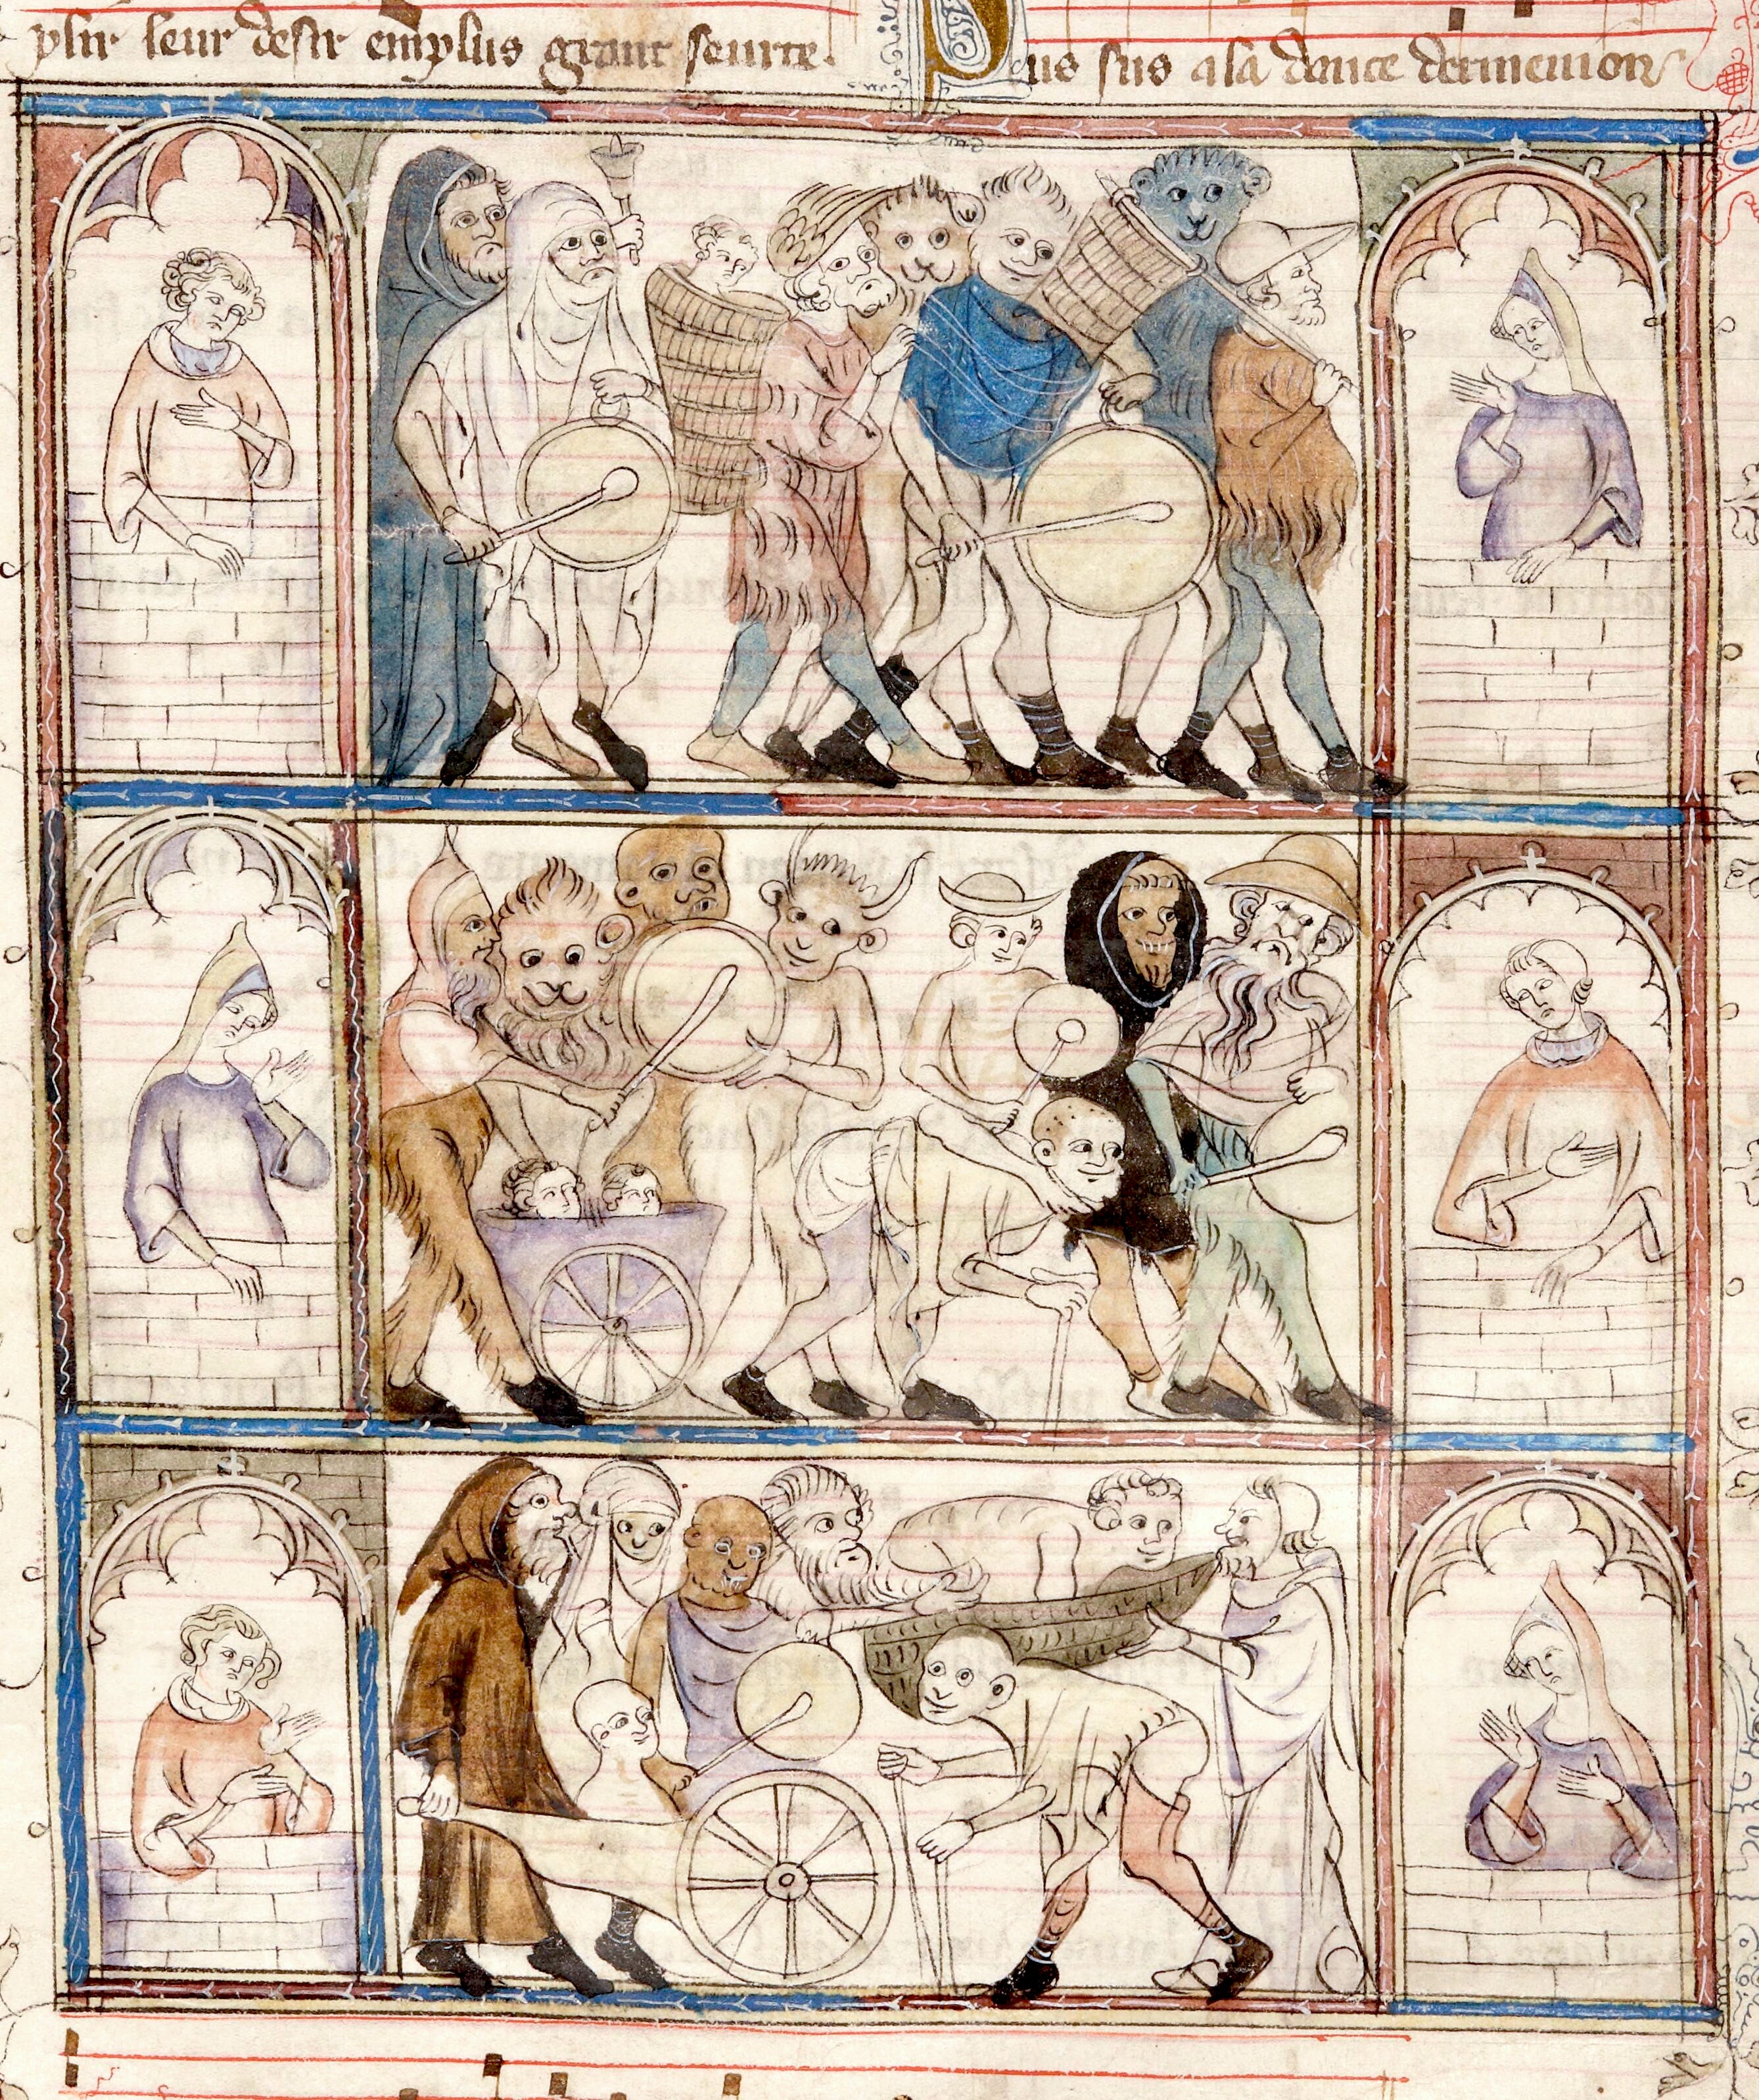 plir leur desir emplus grant seurte.
Sus sus ala dance dermenion